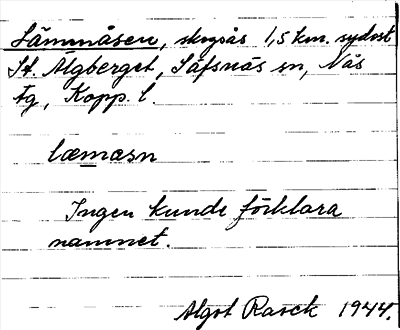 Lämmåsen, skogsås 1,5 km. sydost
St. Älgberget, Säfsnäs sn, Näs
fg, Kopp. l.
læmåsn
Ingen kunde förklara
namnet.
Algot Rasck 1944.